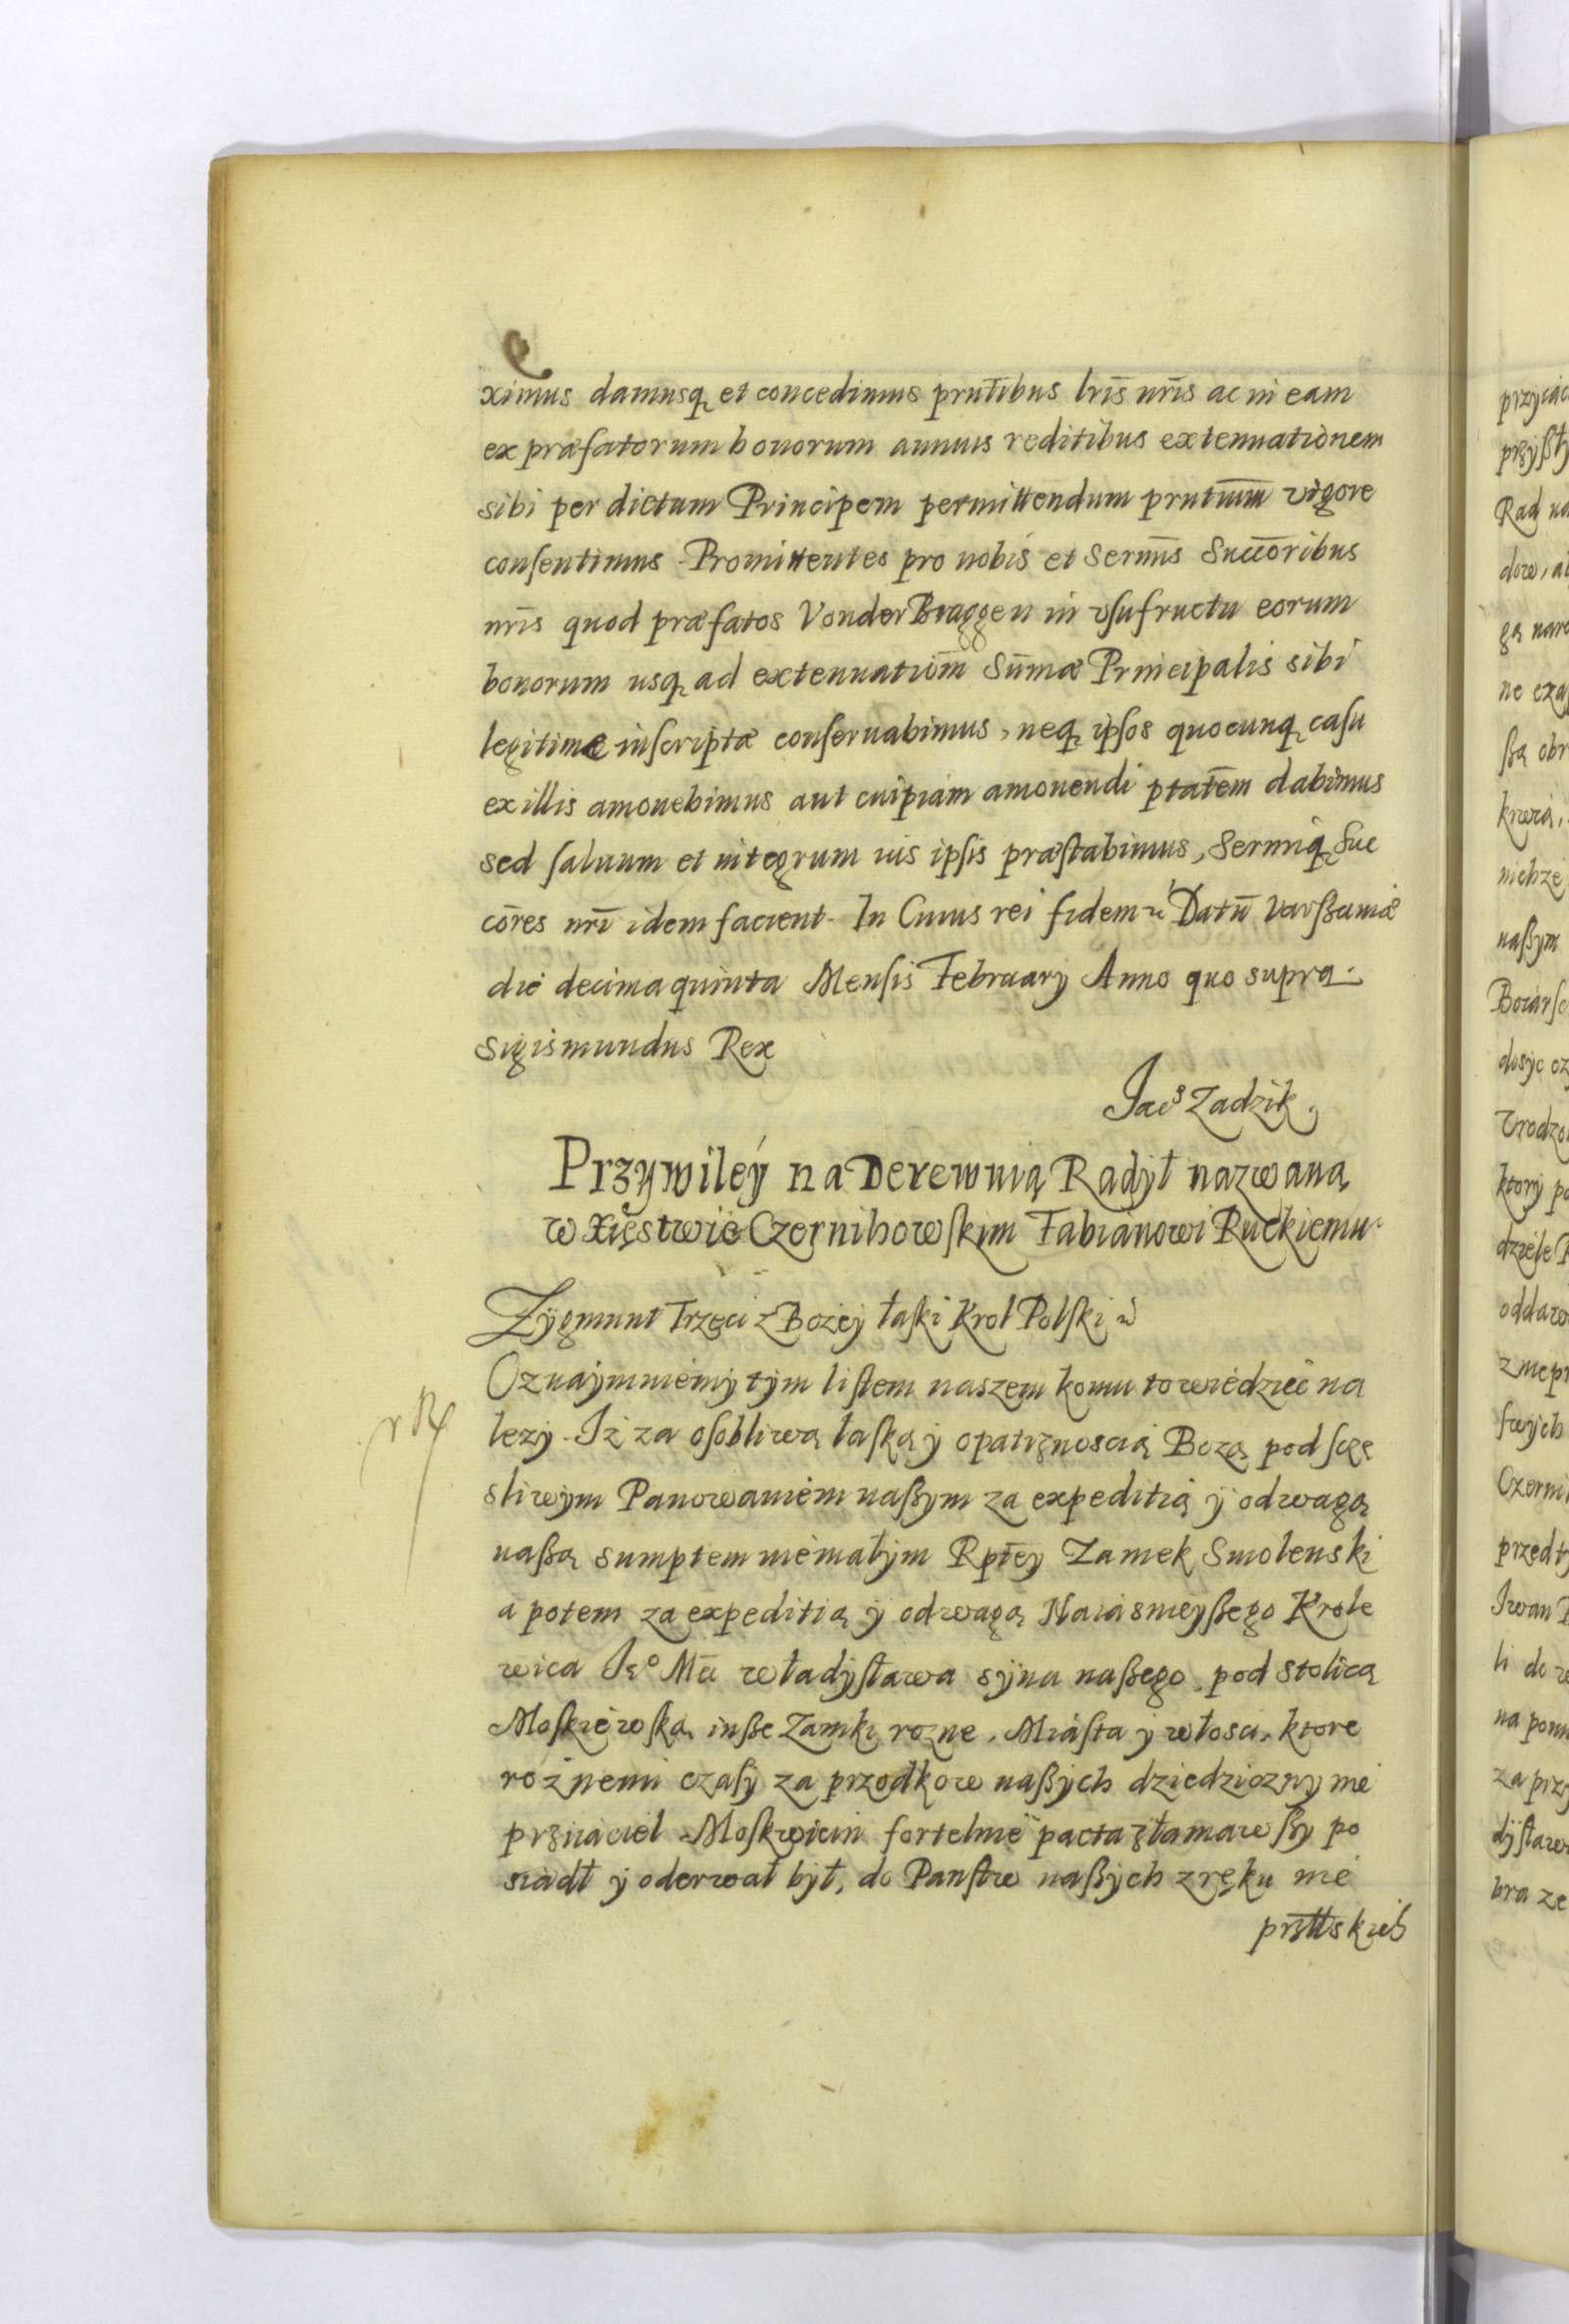 ximus damusq et concedimus pruntibus lris nris ac in eam
ex præfatorum bonorum annuis reditibus extenuationem
sibi per dictum Principem permittendum pruntium vigore
consentimus. Promittentes pro nobis et Sermis Succoribus
nris quod præfatos Vonder Braggen in usufructu eorum
bonorum usq ad extenuatiom Sumæ Principalis sibi
legitime inscriptæ conservabimus, neq ipsos quocunq casu
ex illis amovebimus aut cuipiam amovendi ptatem dabimus
sed salvum et integrum ius ipsis præstabimus, Sermiq Suc
cores nri idem facient. In Cuius rei fidem Datu Varßaviæ
die decima quinta Mensis Februarij Anno quo supra.
Sigismundus Rex
Jacs Zadzik.
Przywiley na Derewnią Radył nazwaną
w Xięstwie Czernihowskim Fabianowi Ruckiemu
Zygmunt Trzeci z Bozey łaski Krol Polski
Oznaymuiemy tym listem naszem komu to wiedziec na
lezy. Iż za osobliwą łaską y opatrznoscią Bozą pod scze
sliwym Panowaniem naßym za expeditią y odwagą
naßą sumptem niemałym Rptey Zamek Smolenski
a potem za expeditią y odwagą Naiasnieyßego Krole
wica Jeo Mci Władysława syna naßego, pod stolicą
Moskiewską inße Zamki rozne, Miasta y włosci, ktore
rożnemi czasy za przodkow naßych dziedziczny nie
przyiaciel Moskwicin fortelnie pacta złamawßy po
siadł y oderwał był, do Panstw naßych z ręku nie
przttskich